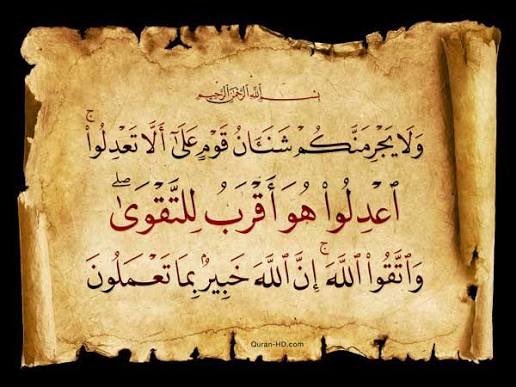 بسم الله الرحمن الرحيم
وَلَا يَجْرِمَنَّكُمْ شَنَـَٔانُ قَوْمٍ عَلَىٰٓ أَلَّا تَعْدِلُوا۟ ۚ
ٱعْدِلُوا۟ هُوَ أَقْرَبُ لِلتَّقْوَىٰ ۖ
وَٱتَّقُوا۟ ٱللَّهَ ۚ إِنَّ ٱللَّهَ خَبِيرٌۢ بِمَا تَعْمَلُونَ
Quran-HD.com